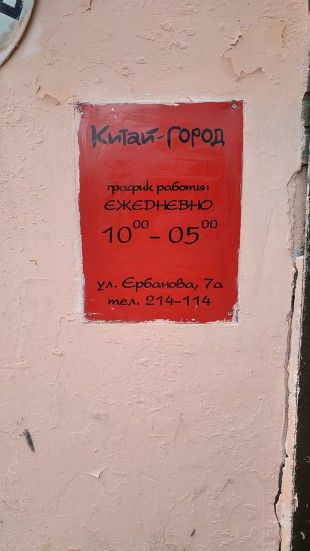 Китай-Город
график работы:
ЕЖЕДНЕВНО
10⁰⁰ - 05⁰⁰
ул. Ербанова, 7а
тел. 214-114